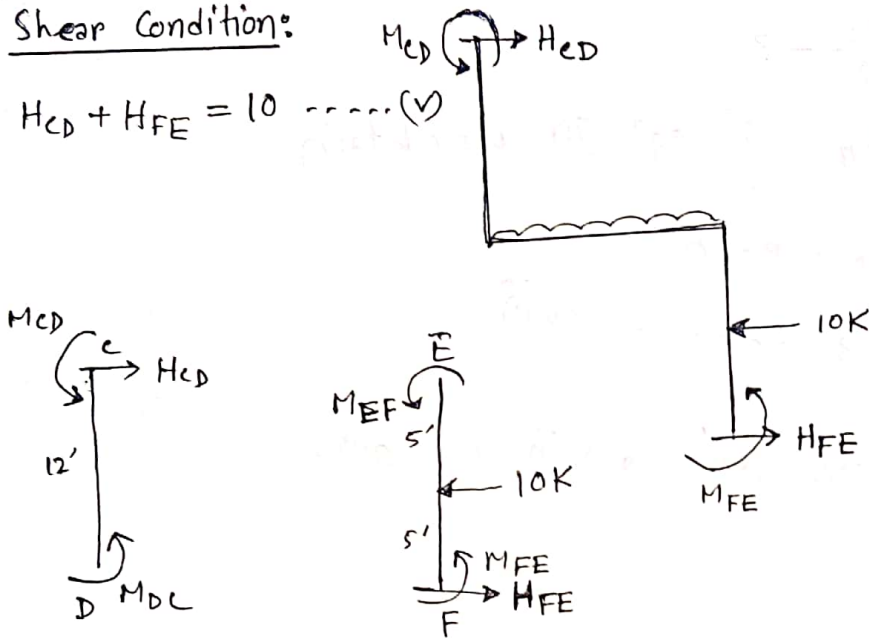 Shear Condition:
H_CD + H_FE = 10 ...... (V)
M_CD
H_CD
10K
H_FE
M_FE
M_CD
C
H_CD
12'
D
M_DC
E
M_EF
5'
10K
5'
M_FE
H_FE
F